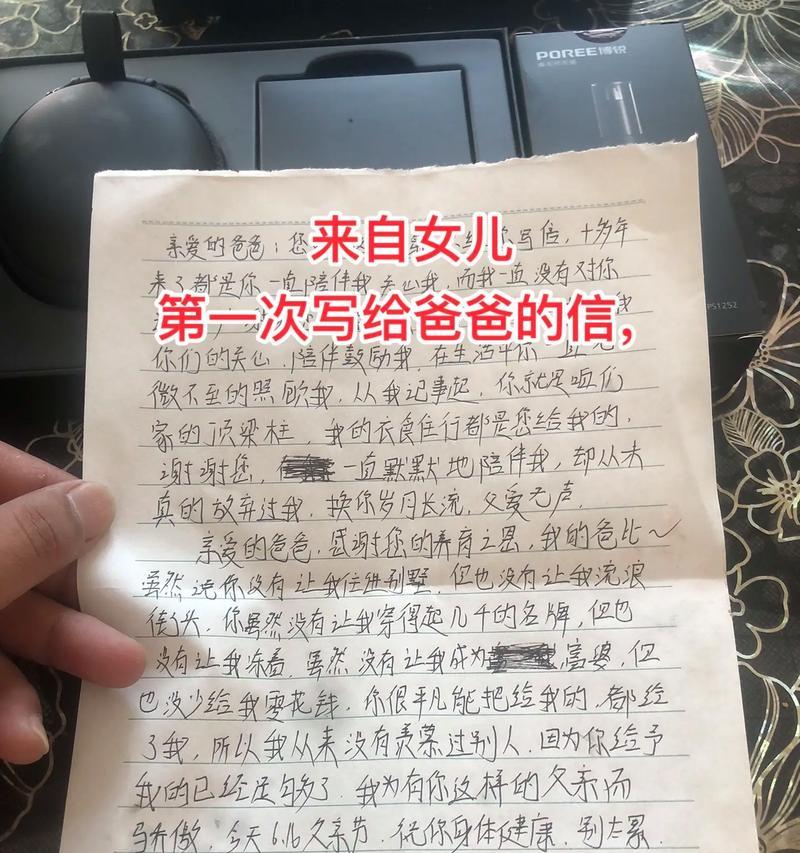 POREE博锐
PS1252
来自女儿
第一次写给爸爸的信,
亲爱的爸爸:您 写信,十多年
来了都是你一直陪伴我关心我,而我一直没有对你
我
你们的关心、陪伴鼓励我,在生活中你一直无
微不至的照顾我,从我记事起,你就是咱们
家的顶梁柱,我的衣食住行都是您给我的,
谢谢您, 一直默默地陪伴我,却从未
真的放弃过我,换你岁月长流,父爱无声.
亲爱的爸爸,感谢您的养育之恩,我的爸比～
虽然说你没有让我住进别墅,但也没有让我流浪
街头,你虽然没有让我穿得起几千的名牌,但也
没有让我冻着,虽然没有让我成为 富婆,但
也没少给我零花钱,你很平凡能把给我的,都给
了我,所以我从来没有羡慕过别人,因为你给予
我的已经足够多了,我为有你这样的父亲而
骄傲,今天6.16父亲节,祝你身体健康,别太累.